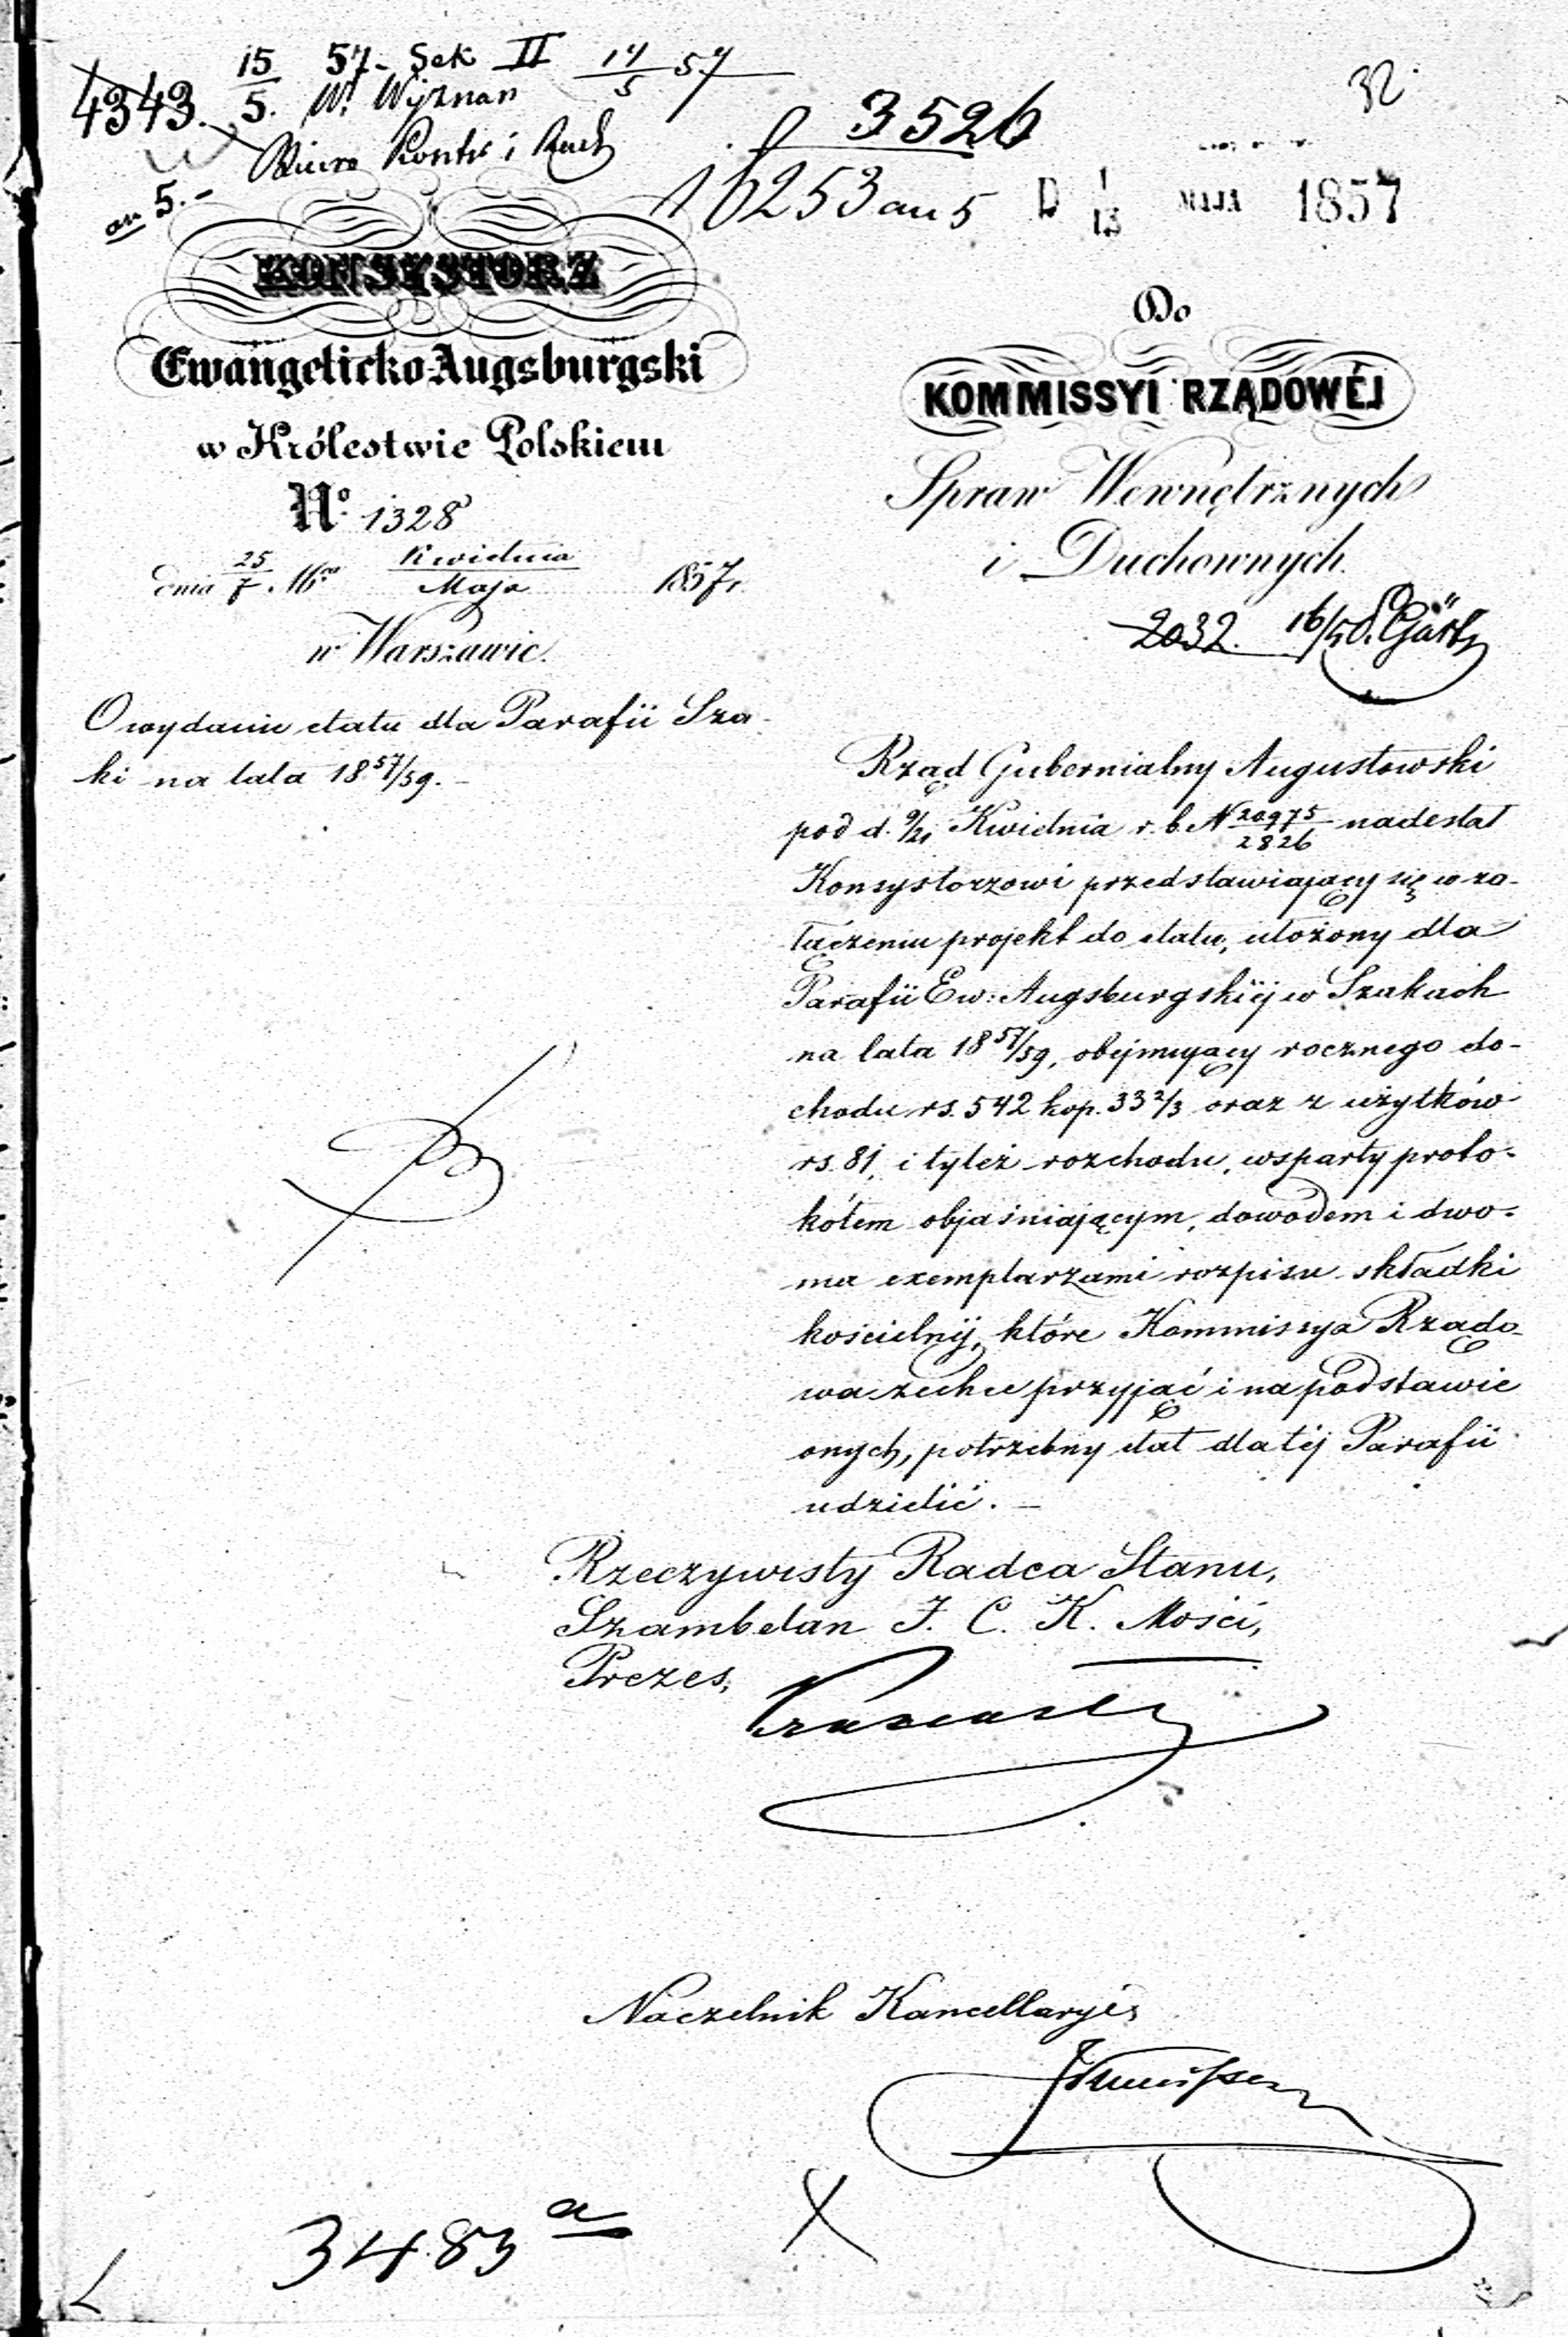 15/5. 57 - Sek II 14/5 57
4343. W. Wyznań
Biuro Kontr i Rach
an 5.-
32
3526
16253 an 5
D 1/13 MAJA 1857
KONSYSTORZ
Ewangelicko-Augsburgski
w Królestwie Polskiem
No. 1328
dnia 25/7 Mca Kwietnia/Maja 1857 r.
w Warszawie.
O wydanie etatu dla Parafii Sza-
ki na lata 18 57/59. -
Do
KOMMISSYI RZĄDOWÉJ
Spraw Wewnętrznych
i Duchownych.
2032. 16/5
Rząd Gubernialny Augustowski
pod d. 9/21 Kwietnia r. b. N 20975/2826 nadesłał
Konsystorzowi przedstawiający się w za-
łączeniu projekt do etatu, ułożony dla
Parafii Ew: Augsburgskiéj w Szakach
na lata 18 57/59, obejmujący rocznego do-
chodu rs. 542 kop. 33 2/3 oraz z użytków
rs. 81, i tyleż rozchodu, wsparty proto-
kółem objaśniającym, dowodem i dwo-
ma exemplarzami rozpisu składki
kościelnéj, które Kommissya Rządo-
wa zechce przyjąć i na podstawie
onych, potrzebny etat dla téj Parafii
udzielić. -
Rzeczywisty Radca Stanu,
Szambelan J. C. K. Mości,
Prezes,
Naczelnik Kancellaryi,
3483 a